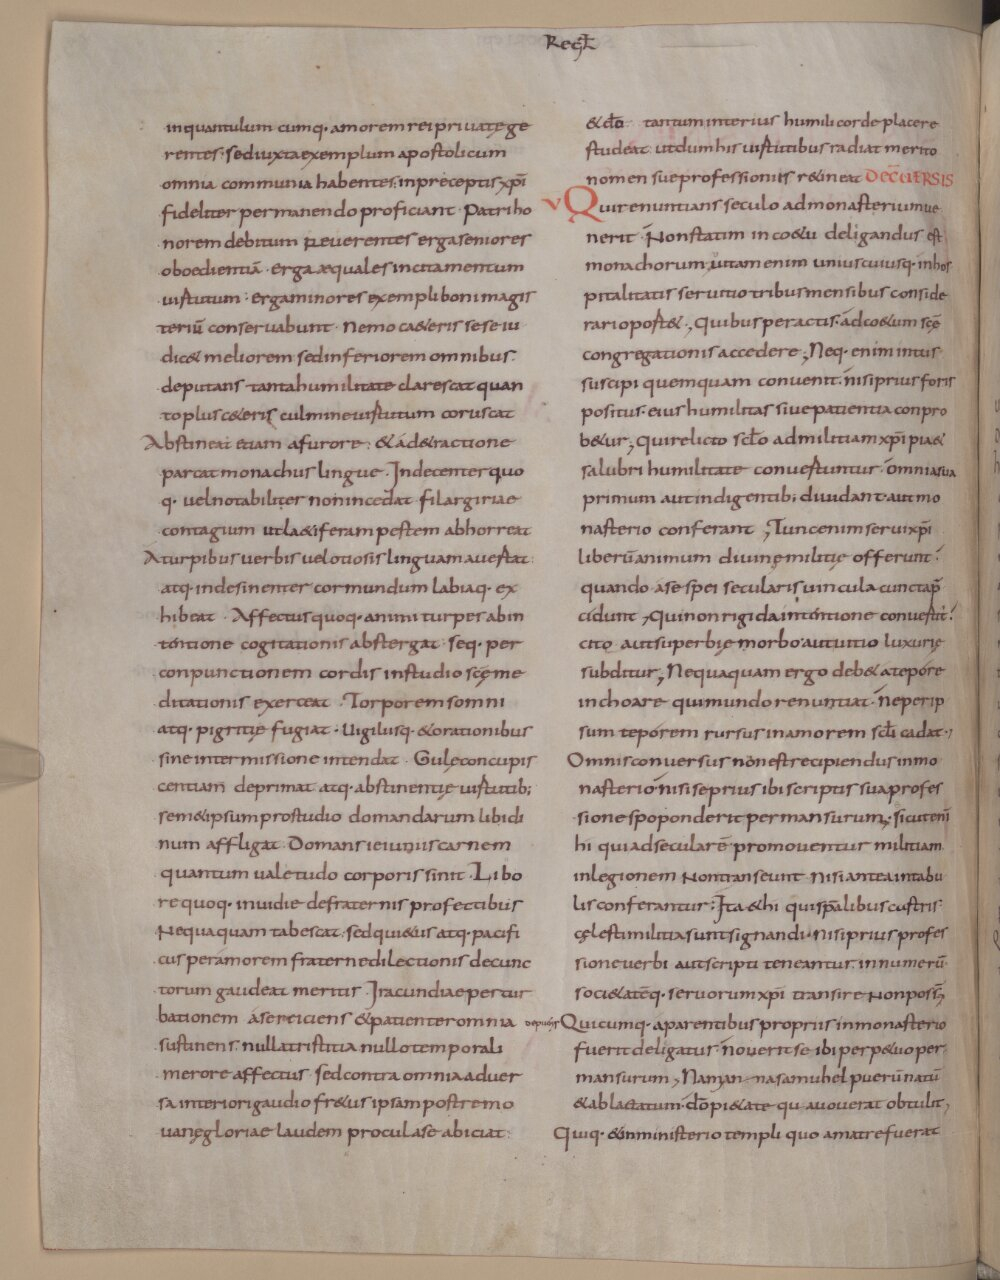 Regl
inquantulum cumq· amorem rei priuatę ge
rentes· sed iuxta exemplum apostolicum
omnia communia habentes· in preceptis xp̄i
fideliter permanendo proficiant· Patri ho
norem debitum Reuerentes erga seniores
oboedientiā· erga æquales incitamentum
uirtutum· erga minores exempli boni magis
teriū conseruabunt· Nemo ca&eris se se iu
dic& meliorem sed inferiorem omnibus·
deputans tanta humilitate clarescat quan
to plus c&eris culmine uirtutum coruscat
Abstineat etiam a furore· & ad&ractione
parcat monachus lingue· Indecenter quo
q· uel notabiliter non incedat· filargiriae
contagium ut la&iferam pestem abhorreat
A turpibus uerbis uel otiosis linguam auertat·
atq· indesinenter cor mundum labiaq· ex
hibeat· Affectus quoq· animi turpes ab in
tentione cogitationis abstergat· seq· per
conpunctionem cordis in studio scę me
ditationis exerceat· Torporem somni
atq· pigritię fugiat· Uigiliisq· & orationibus
sine intermissione intendat· Gulę concupis
centiam deprimat atq· abstinentię uirtutib;
sem&ipsum pro studio domandarum libidi
num affligat· Domans ieiuniis carnem
quantum ualetudo corporis sinit· Libo
re quoq· inuidie de fraternis profectibus
Nequaquam tabescat· sed qui&us atq· pacifi
cus per amorem fraterne dilectionis de cunc
torum gaudeat meritis· Iracundiae pertur
bationem a se reiciens & patienter omnia
sustinens· nulla tristitia nullo temporali
merore affectus· sed contra omnia aduer
sa interiori gaudio fr&us ipsam postremo
uanę gloriae laudem procul a se abiciat·
& dō tantum interius humili corde placere
studeat· ut dum his uirtutibus radiat merito
nomen sue professionis r&ineat DE CŌUERSIS
V Qui renuntians seculo ad monasterium ue
nerit· Non statim in co&u deligandus est
monachorum· uitam enim uniuscuiusq· in hos
pitalitatis seruitio tribus mensibus conside
rari oport&·, Quibus peractis· ad co&um scę
congregationis accedere; Neq· enim intus
suscipi quemquam conuenit· nisi prius foris
positus· eius humilitas siue patientia conpro
b&ur; Qui relicto scł̄o ad militiam xp̄i pia&
salubri humilitate conuertuntur· omnia sua
primum aut indigentib; diuidant aut mo
nasterio conferant; Tunc enim serui xp̄i
liberū animum diuinę militię offerunt·
quando a se spei secularis uincula cuncta p̄
cidunt; Qui non rigida intentione conuertit·
cito aut superbię morbo aut uitio luxurię
subditur; Nequaquam ergo deb& a tepore
inchoare qui mundo renuntiat· ne perip
sum teporem rursus in amorem scł̄i cadat·,
Omnis conuersus non est recipiendus in mo
nasterio nisi se prius ibi scriptis sua profes
sione spoponderit permansurum; sicut enī
hi qui ad secularē promouentur militiam
in legionem Non transeunt Nisi antea in tabu
lis conferantur· Ita & hi qui sp̄alibus castris·
cęlesti militia sunt signandi· Nisi prius profes
sione uerbi aut scripti teneantur· in numerū
soci&atēq· seruorum xp̄i transire Non poss̄;
depueris Quicumq· a parentibus propriis in monasterio
fuerit deligatus· nouerit se ibi perp&uo per
mansurum; Nam anna samuhel puerū natū
& ablactatum· dō pi&ate qua uouerat obtulit,
Quiq· & in ministerio templi quo a matre fuerat